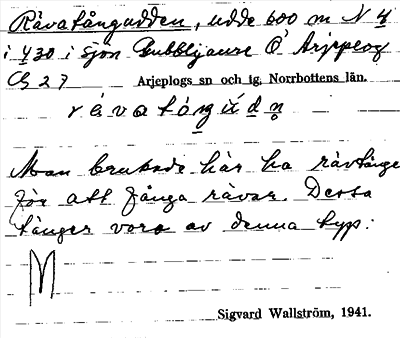 Rävatångudden, udde 600 m N 4
i 430 i sjön Gubblijaure Ö Arjeplog
Cb 27 Arjeplogs sn och tg, Norrbottens län.
rävatåŋúdn̥
Man brukade här ha rävtånge
för att fånga rävar. Dessa
tånger vora av denna typ:
Sigvard Wallström, 1941.